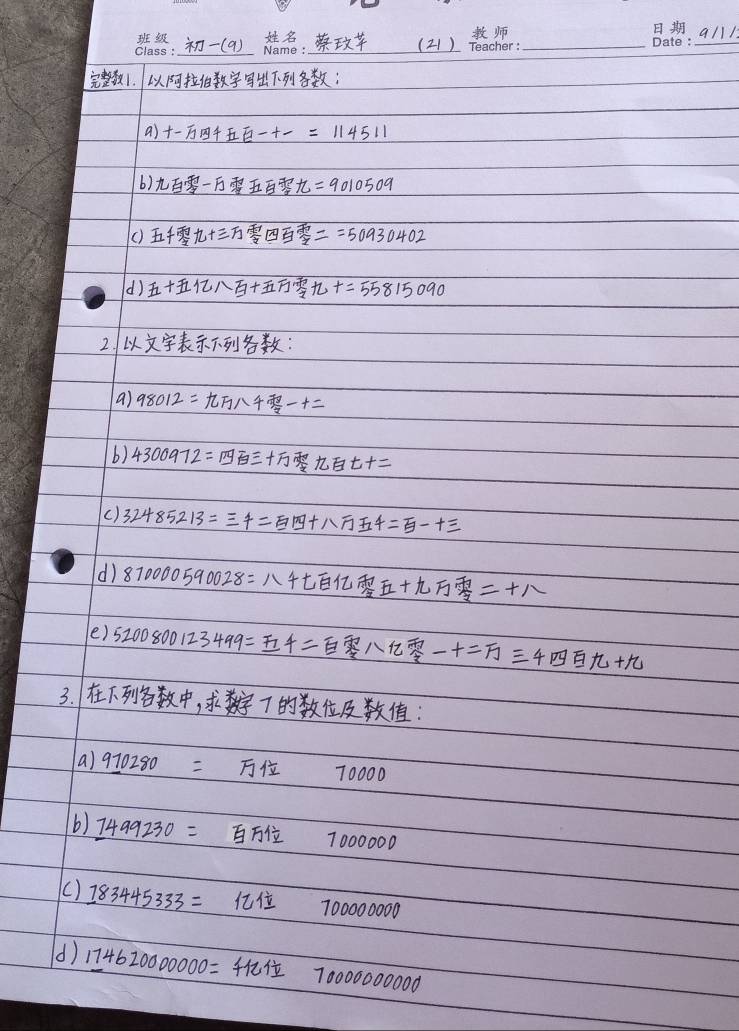 班级 姓名 教师 日期
Class: 初一(9) Name: 蔡玟芊 (21) Teacher: Date: 9/1/
完整数1. 以阿拉伯数字写出下列各数:
a)十一万四千五百一十一 = 114511
b)九百零一万零五百零九=9010509
c)五千零九十三万零四百零二=50930402
d)五十五亿八百十五万零九十=55815090
2. 以文字表示下列各数:
a)98012=九万八千零一十二
b)4300972=四百三十万零九百七十二
c)32485213=三千二百四十八万五千二百一十三
d)870000590028=八千七百亿零五十九万零二十八
e)5200800123499=五千二百零八亿零一十二万三千四百九十九
3. 在下列各数中,求数字7的数位及数值:
a)970280 = 万位 70000
b)7499230= 百万位 7000000
c)783445333= 亿位 700000000
d)174620000000=千亿位 70000000000